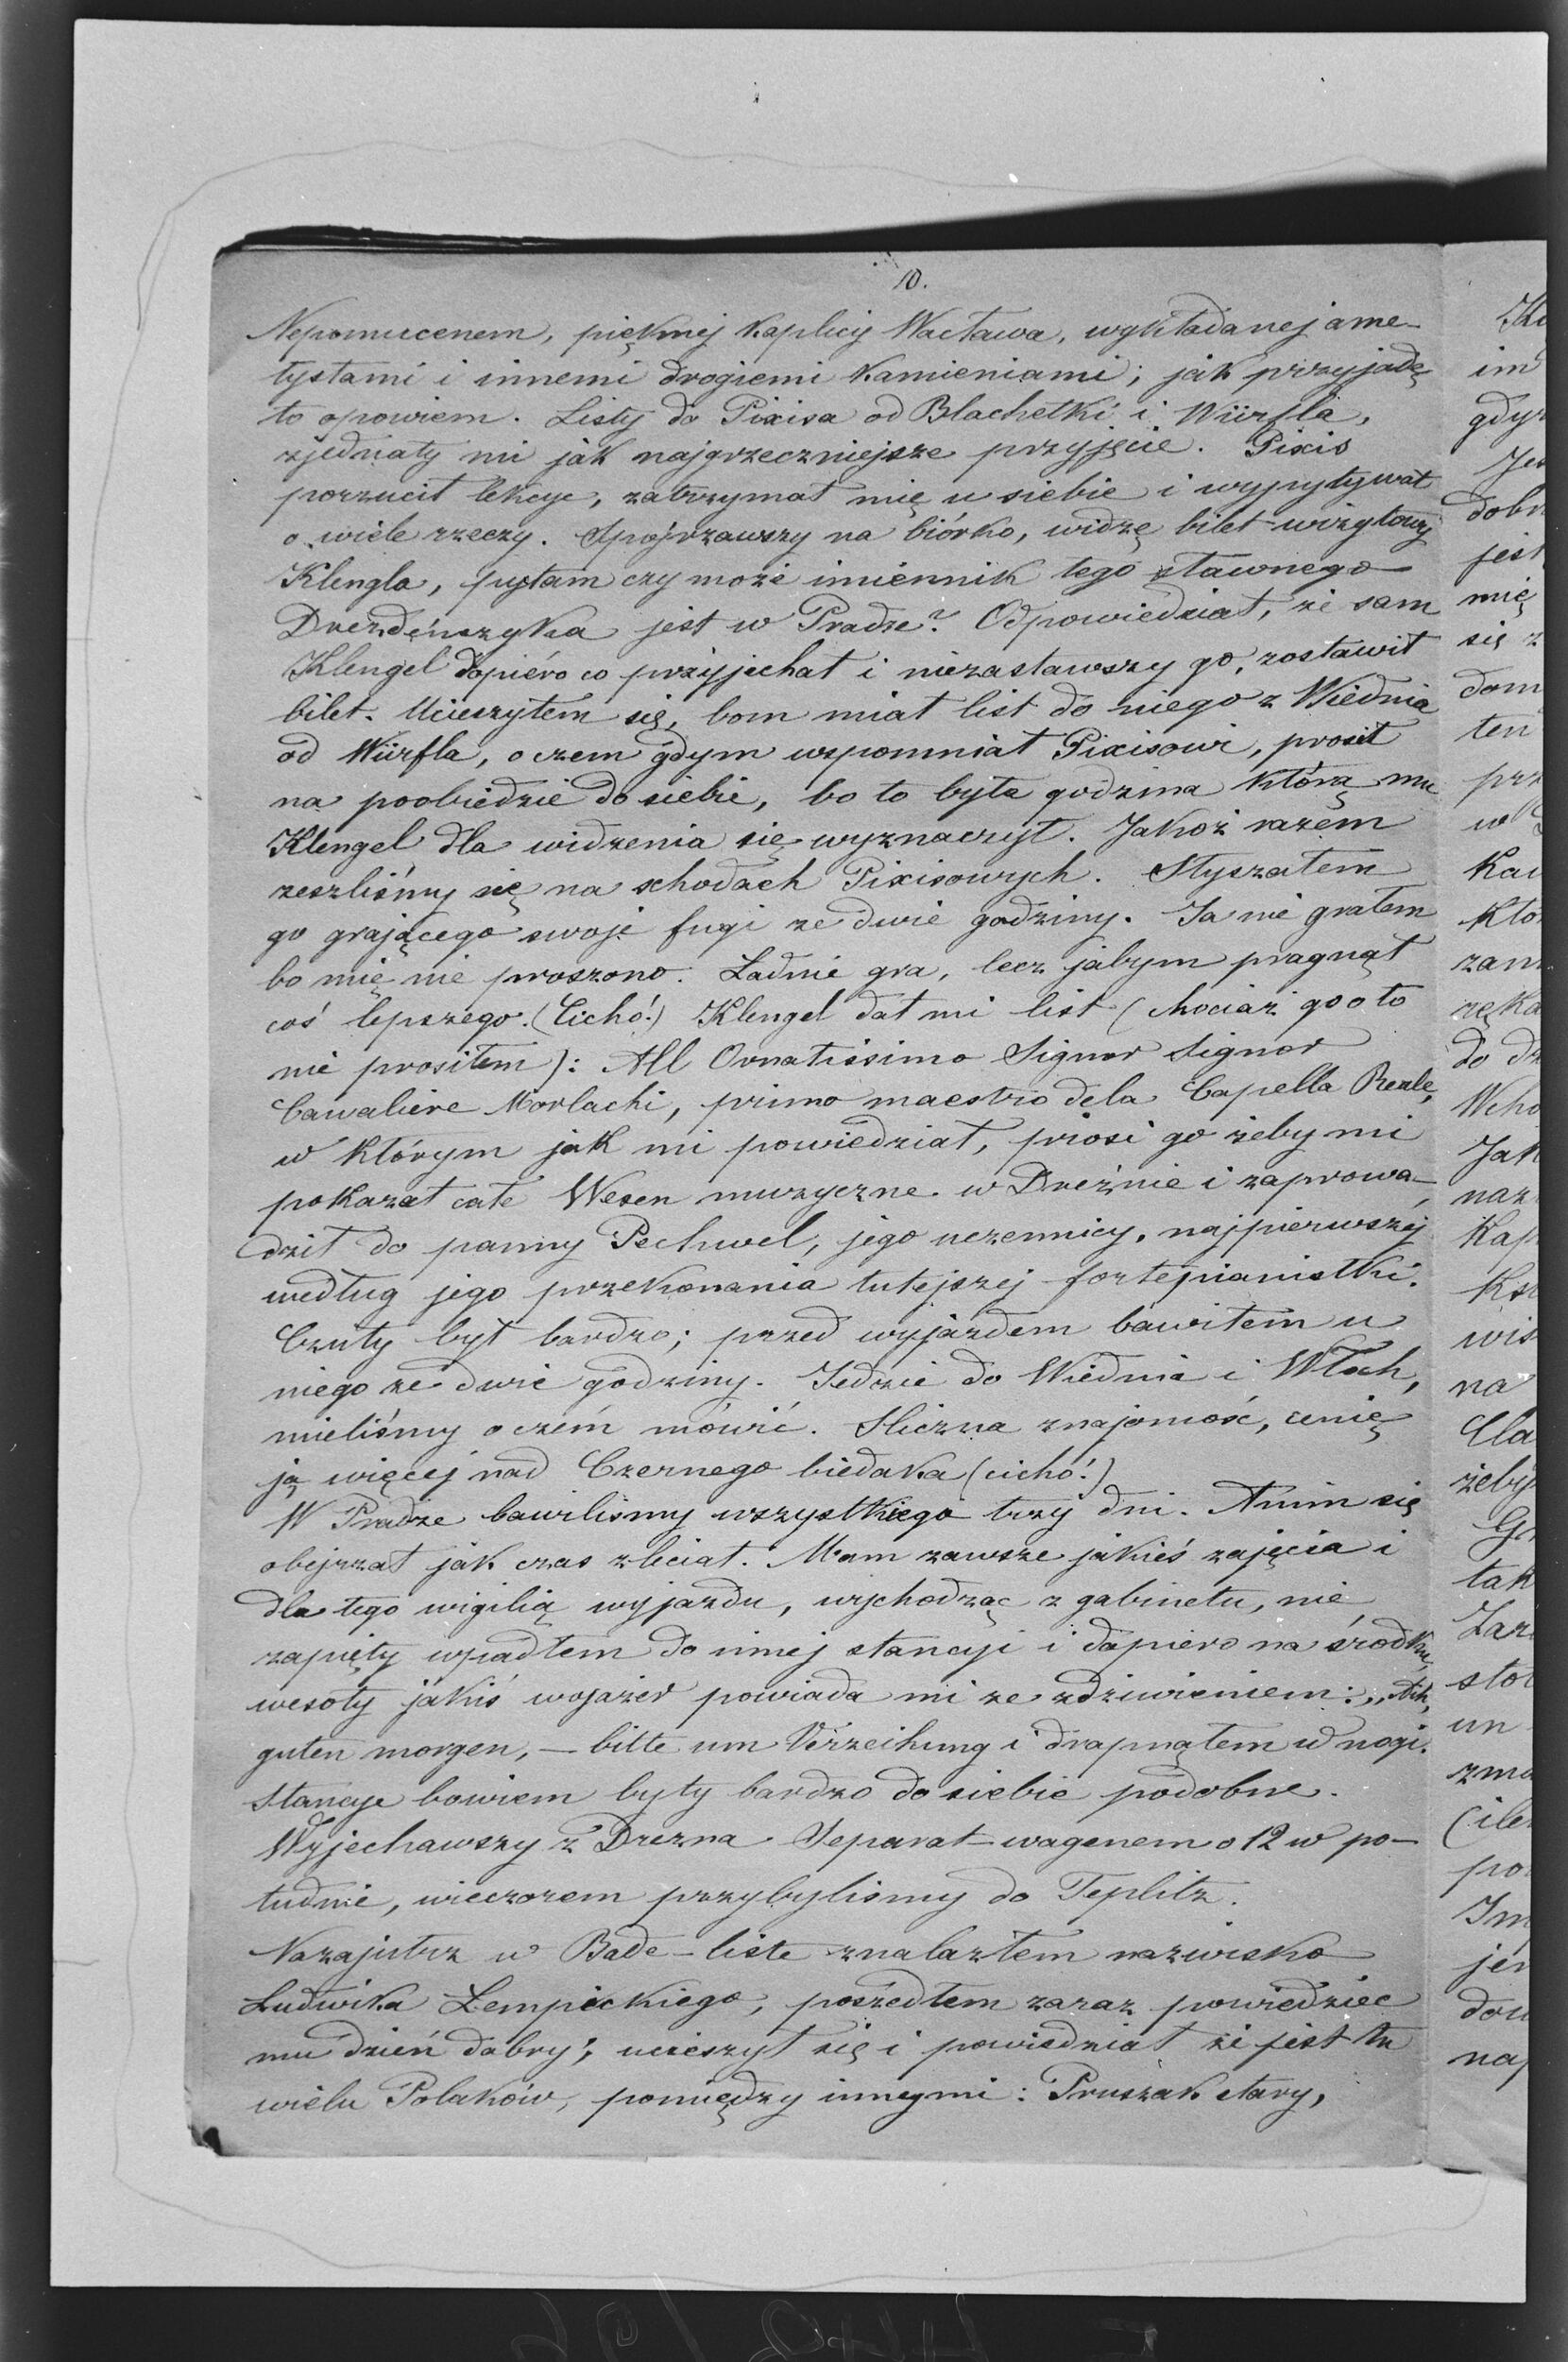 10.
Nepomucenem, pięknej Kaplicy Wacława, wykładanej ame-
tystami i innemi drogiemi Kamieniami; jak przyjadę
to opowiem. Listy do Pixisa od Blachetki i Würfla,
zjednały mi jak najgrzeczniejsze przyjęcie. Pixis
porzucił lekcye, zatrzymał mię u siebie i wypytywał
o wiele rzeczy. Spójrzawszy na biórko, widzę bilet wizytowy
Klengla, pytam czy może imiennik tego sławnego
Drezdeńszyka jest w Pradze? Odpowiedział, że sam
Klengel dopiéro co przyjechał i niezastawszy go, zostawił
bilet. Ucieszyłem się, bom miał list do niego z Wiednia
od Würfla, o czem gdym wspomniał Pixisowi, prosił
na poobiedzie do siebie, bo to była godzina którą mu
Klengel dla widzenia się wyznaczył. Jakoż razem
zeszliśmy się na schodach Pixisowych. Słyszałem
go grającego swoje fugi ze dwie godziny. Ja nie grałem
bo mię nie proszono. Ładnie gra, lecz jabym pragnął
coś lepszego. (Cicho!) Klengel dał mi list (chociaż go o to
nie prosiłem): All Ornatissimo Signor Signor
Cavaliere Morlachi, primo maestro dela Capella Reale,
w którym jak mi powiedział, prosi go żeby mi
pokazał całe Wesen muzyczne w Dreźnie i zaprowa-
dził do panny Pechwel, jego uczennicy, najpierwszéj
według jego przekonania tutejszej fortepianistki.
Czuły był bardzo; przed wyjazdem bawiłem u
niego ze dwie godziny. Jedzie do Wiednia i Włoch,
mieliśmy o czém mówić. Śliczna znajomość, cenię
ją więcej nad Czernego biedaka (cicho!)
W Pradze bawiliśmy wszystkiego trzy dni. Anim się
obejrzał jak czas zleciał. Mam zawsze jakieś zajęcia i
dla tego wigilią wyjazdu, wychodząc z gabinetu, nie
zapięty wpadłem do innej stancyi i dopiero na środku,
wesoły jakiś wojażer powiada mi ze zdziwieniem: „Ach,
guten morgen, — bitte um Verzeihung i drapnąłem w nogi.
Stancye bowiem były bardzo do siebie podobne.
Wyjechawszy z Drezna Separat-wagenem o 12 w po-
łudnie, wieczorem przybyliśmy do Teplitz.
Nazajutrz w Bade-liste znalazłem nazwisko
Ludwika Łempickiego, poszedłem zaraz powiedzieć
mu dzień dobry; ucieszył się i powiedział że jest tu
wielu Polaków, pomiędzy innymi: Pruszak stary,